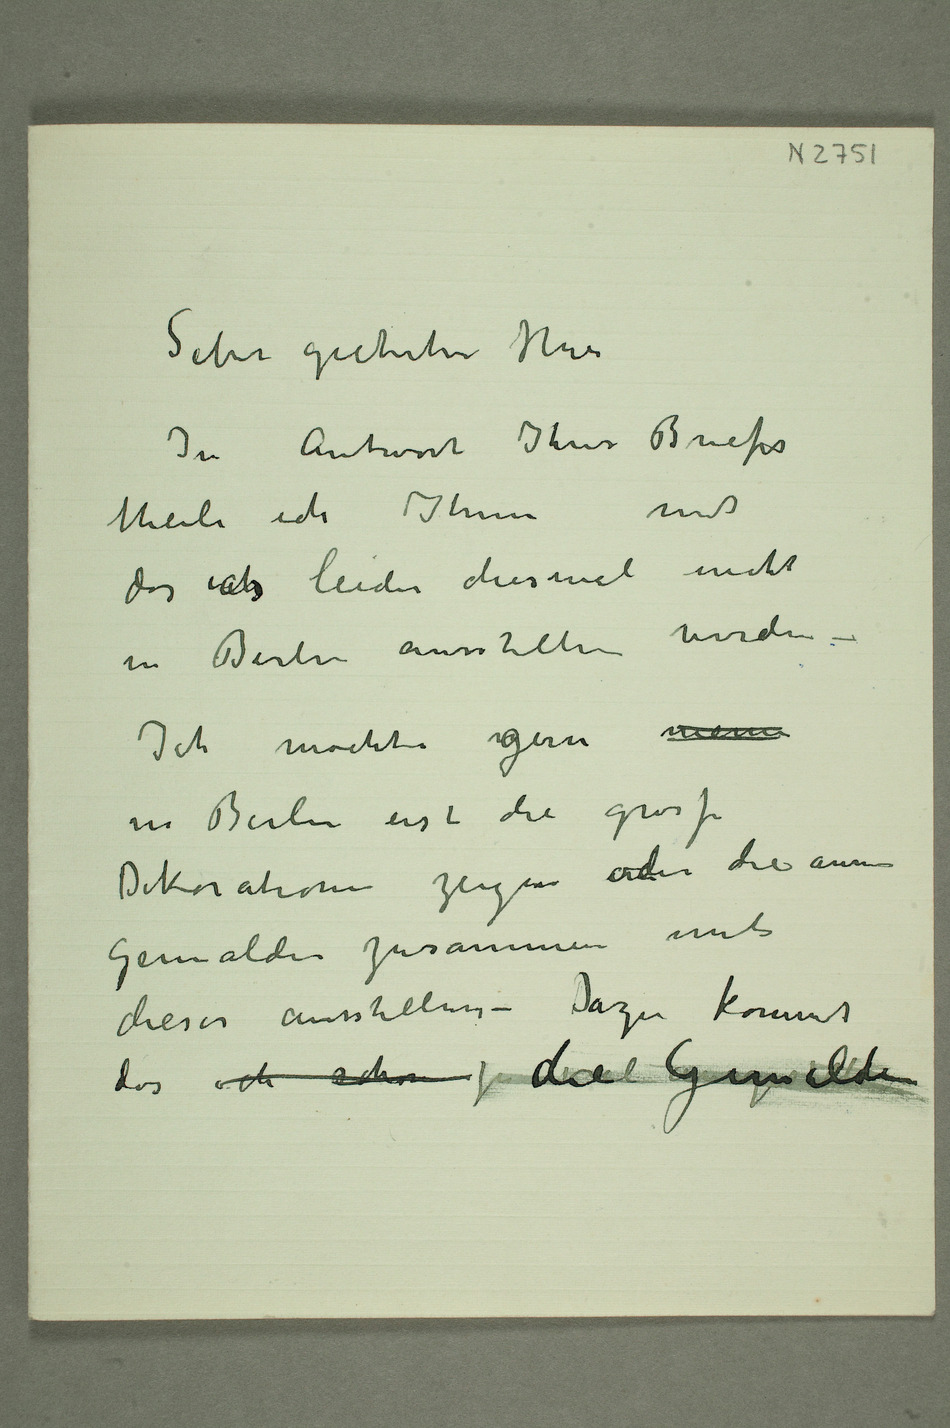 N 2751
Sehr geehrter Herr
In Antwort Ihres Briefes
theile ich Ihnen mit
das ich leider diesmal nicht
in Berlin ausstellen werden –
Ich möchte gern meine
in Berlin erst die grosse
Dekorationen zeigen oder die
Gemälden zusammen mit
dieser ausstellen – Dazu kommt
das ich schon die Gemälden